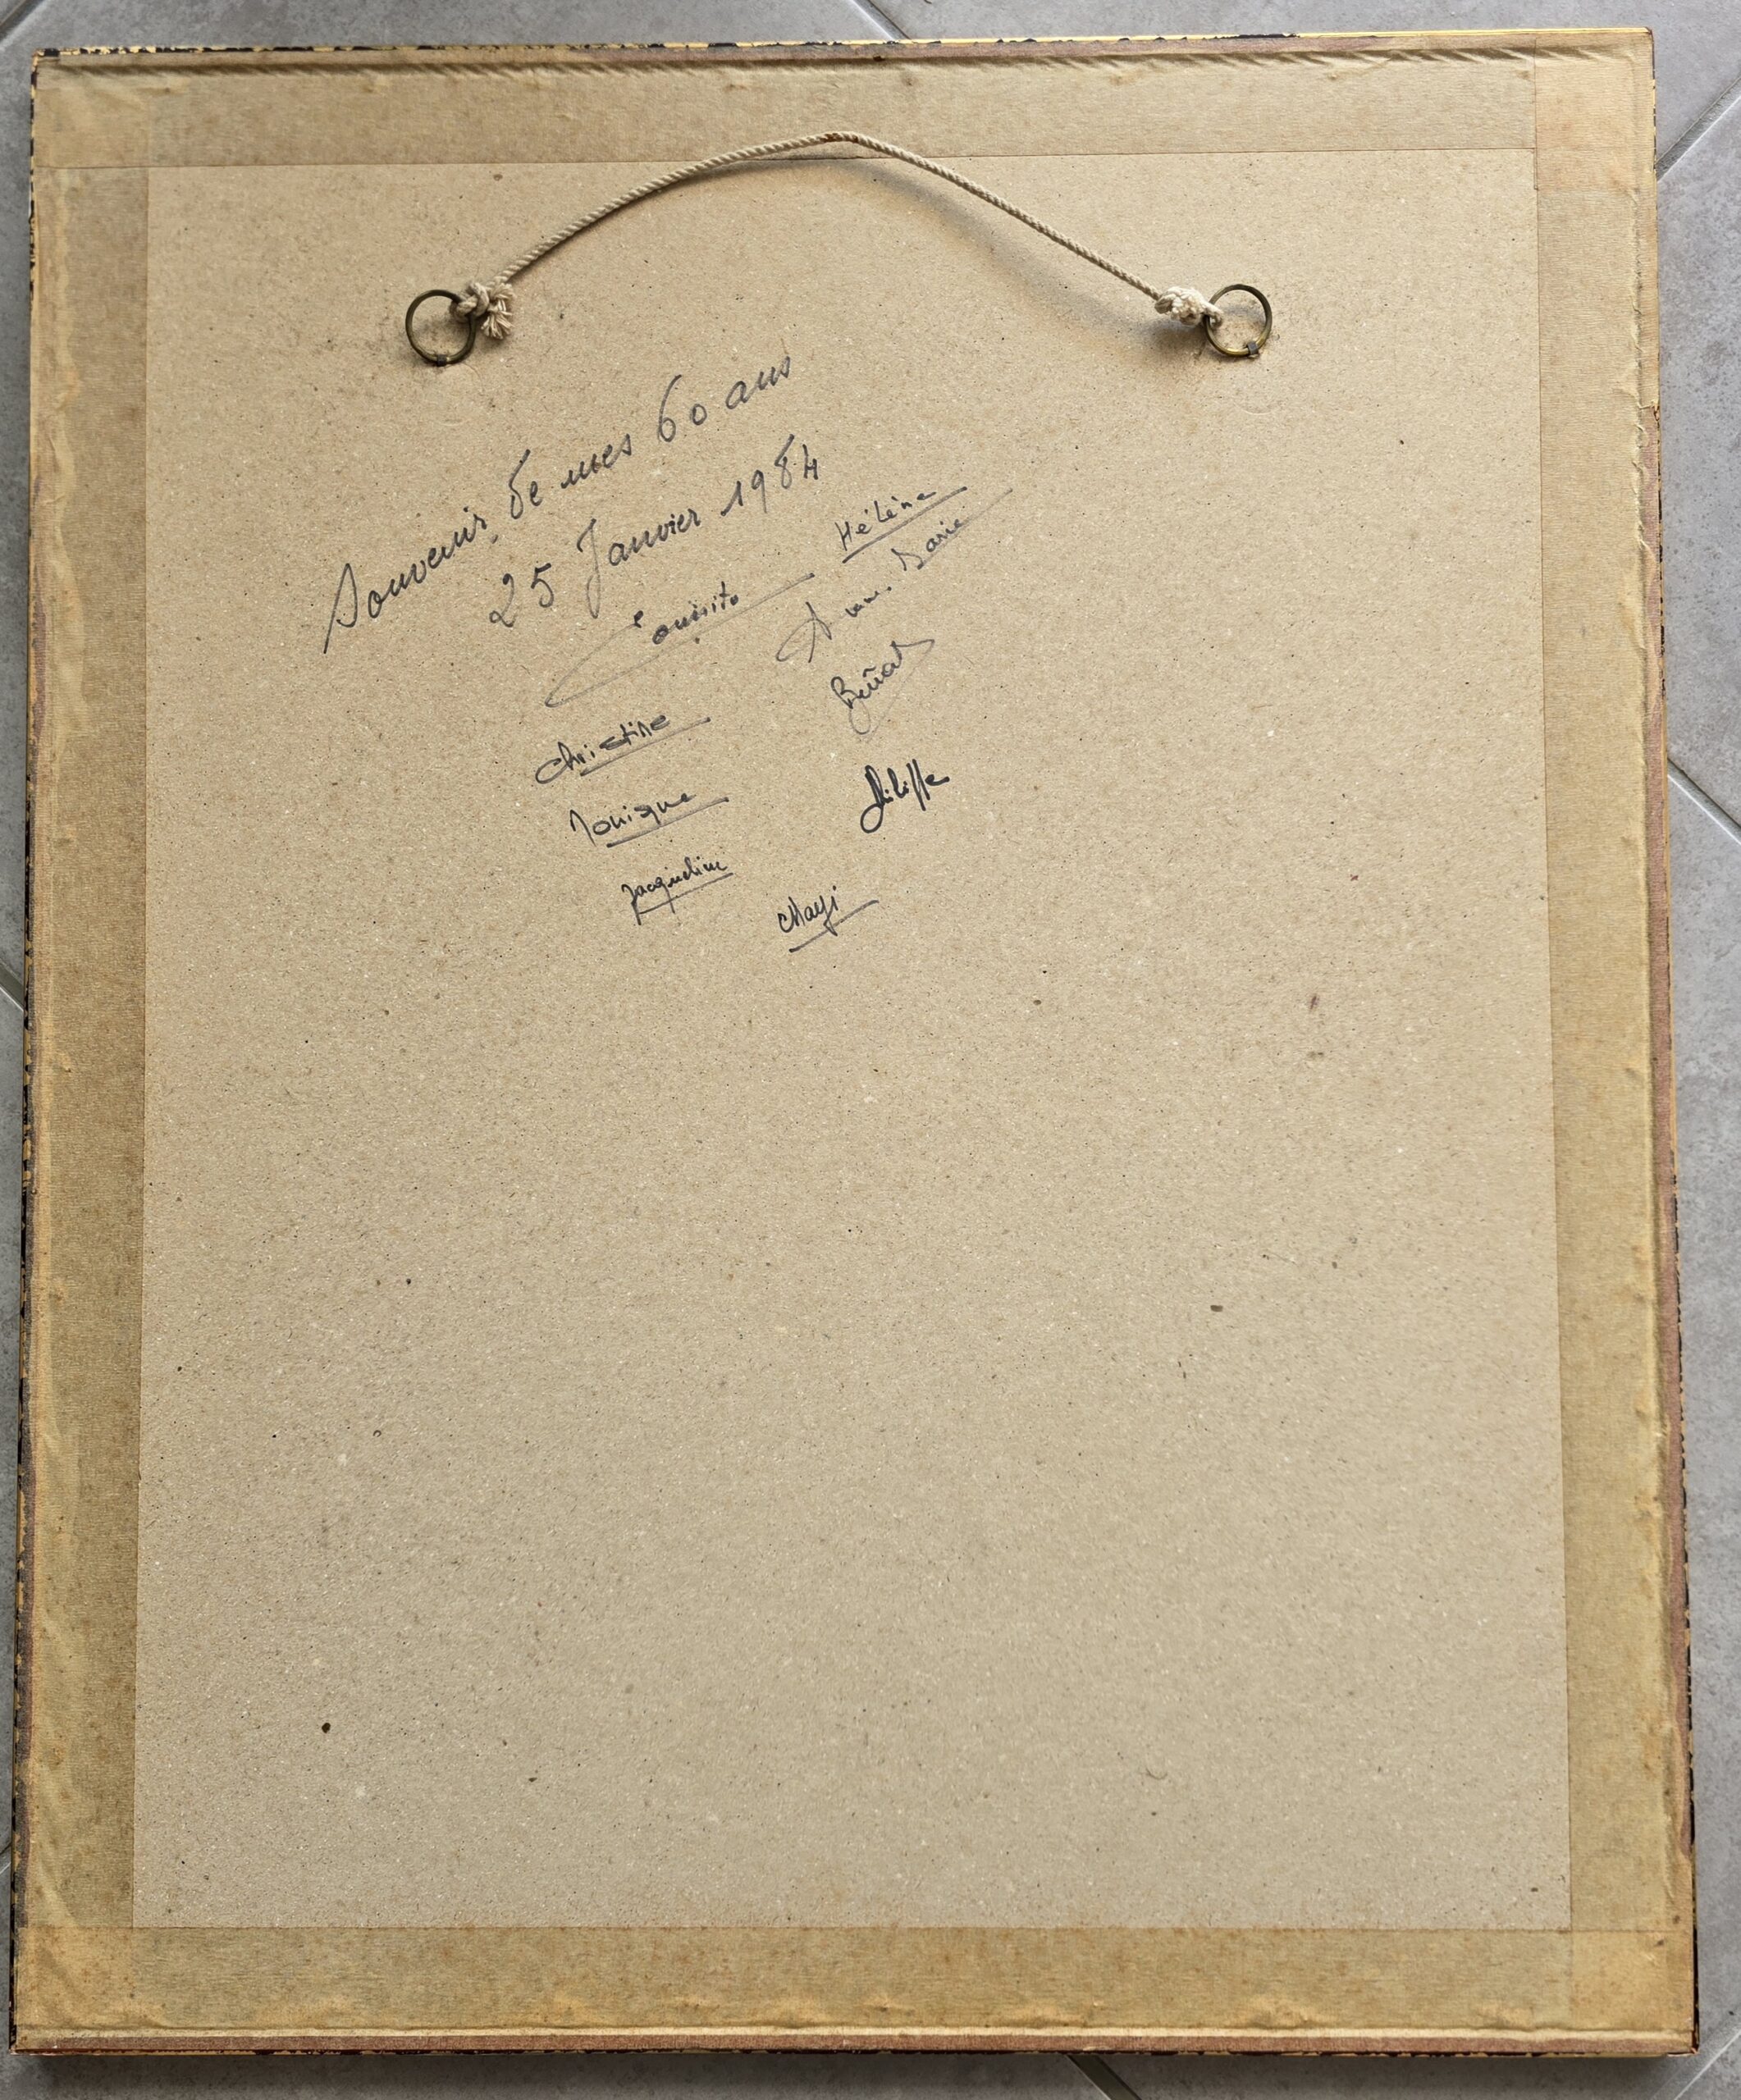 Souvenir de mes 60 ans
25 Janvier 1984
Hélène
Anne. Marie
Beñat
Christine
Monique
Philippe
Jacqueline
Mayi